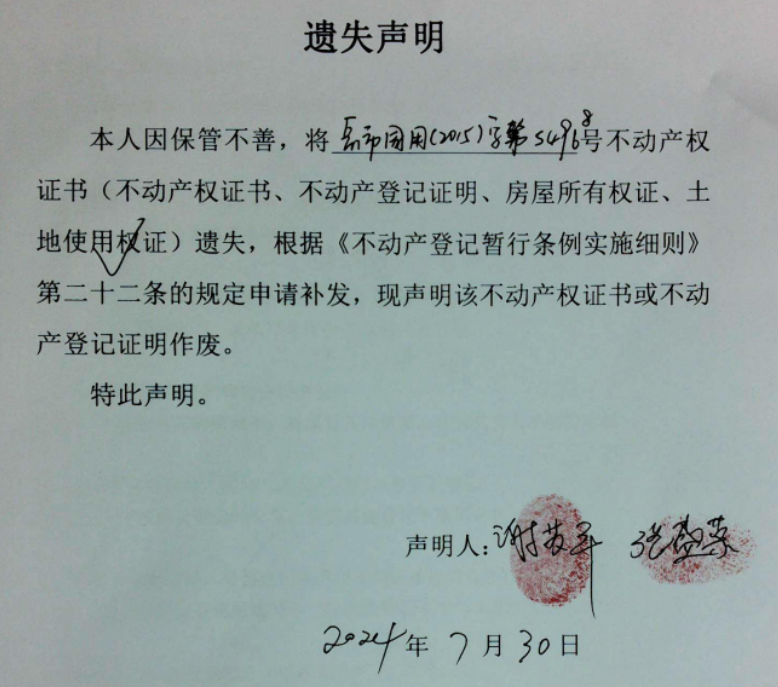 遗失声明
本人因保管不善，将 市国用(2015)字第54968号不动产权
证书（不动产权证书、不动产登记证明、房屋所有权证、土
地使用权证）遗失，根据《不动产登记暂行条例实施细则》
第二十二条的规定申请补发，现声明该不动产权证书或不动
产登记证明作废。
特此声明。
声明人：谢 张
2024年7月30日